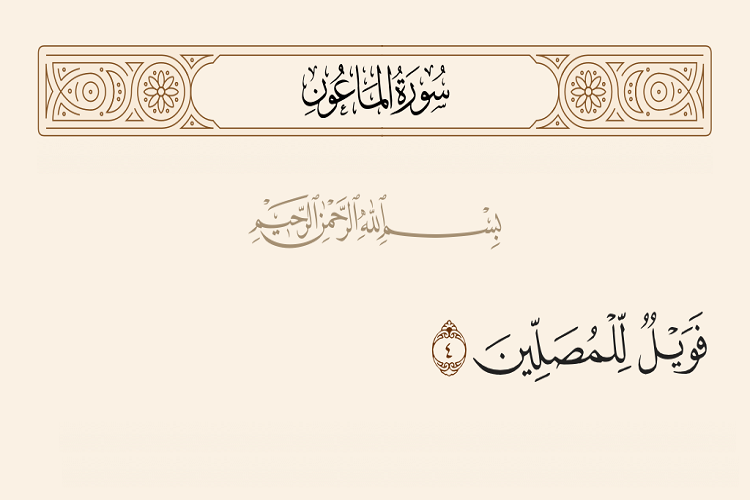 سُورَةُ المَاعُونِ
بِسْمِ ٱللَّهِ ٱلرَّحْمَٰنِ ٱلرَّحِيمِ
فَوَيْلٌ لِّلْمُصَلِّينَ ٤